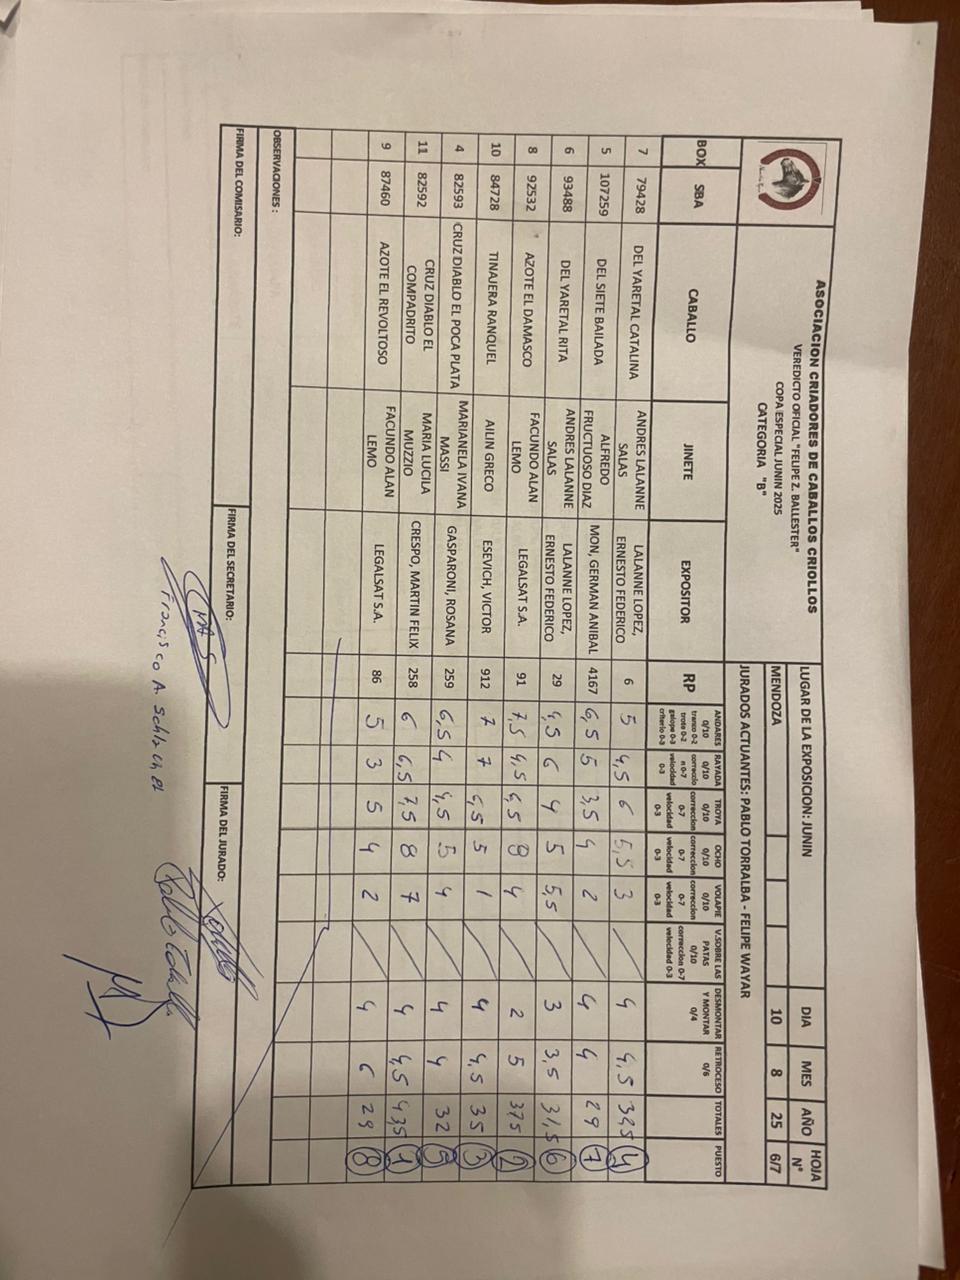 ASOCIACION CRIADORES DE CABALLOS CRIOLLOS
VEREDICTO OFICIAL "FELIPE Z. BALLESTER"
COPA ESPECIAL JUNIN 2025
CATEGORIA "B"
LUGAR DE LA EXPOSICION: JUNIN DIA MES AÑO HOJA N°
MENDOZA 10 8 25 6/7
JURADOS ACTUANTES: PABLO TORRALBA - FELIPE WAYAR
BOX SBA CABALLO JINETE EXPOSITOR RP ANDARES 0/10 tranco 0-2 trote 0-2 galope 0-3 criterio 0-3 RAYADA 0/10 correccion 0-7 velocidad 0-3 TROYA 0/10 correccion 0-7 velocidad 0-3 OCHO 0/10 correccion 0-7 velocidad 0-3 VOLAPIE 0/10 correccion 0-7 velocidad 0-3 V.SOBRE LAS PATAS 0/10 correccion 0-7 velocidad 0-3 DESMONTAR Y MONTAR 0/4 RETROCESO 0/6 TOTALES PUESTO
7 79428 DEL YARETAL CATALINA ANDRES LALANNE SALAS LALANNE LOPEZ, ERNESTO FEDERICO 6 5 4,5 6 5,5 3 / 4 4,5 32,5 4
5 107259 DEL SIETE BAILADA ALFREDO FRUCTUOSO DIAZ MON, GERMAN ANIBAL 4167 6,5 5 3,5 4 2 / 4 4 29 7
6 93488 DEL YARETAL RITA ANDRES LALANNE SALAS LALANNE LOPEZ, ERNESTO FEDERICO 29 4,5 6 4 5 5,5 / 3 3,5 31,5 6
8 92532 AZOTE EL DAMASCO FACUNDO ALAN LEMO LEGALSAT S.A. 91 7,5 4,5 6,5 8 4 / 2 5 37,5 2
10 84728 TINAJERA RANQUEL AILIN GRECO ESEVICH, VICTOR 912 7 7 6,5 5 1 / 4 4,5 35 3
4 82593 CRUZ DIABLO EL POCA PLATA MARIANELA IVANA MASSI GASPARONI, ROSANA 259 6,5 4 4,5 5 4 / 4 4 32 5
11 82592 CRUZ DIABLO EL COMPADRITO MARIA LUCILA MUZZIO CRESPO, MARTIN FELIX 258 6 6,5 7,5 8 7 / 4 4,5 43,5 1
9 87460 AZOTE EL REVOLTOSO FACUNDO ALAN LEMO LEGALSAT S.A. 86 5 3 5 4 2 / 4 6 29 8
OBSERVACIONES :
FIRMA DEL COMISARIO: FIRMA DEL SECRETARIO: FIRMA DEL JURADO: